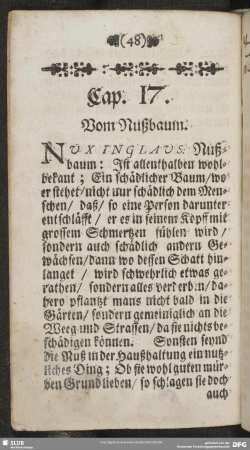 (48)
Cap. 17.
Vom Nußbaum.
NUX INGLAUS: Nuß-
baum: Ist allenthalben wohl-
bekant; Ein schädlicher Baum/ wo
er stehet/ nicht nur schädlich dem Men-
schen/ daß/ so eine Person darunter
entschläfft/ er es in seinem Kopff mit
grossem Schmertzen fühlen wird/
sondern auch schädlich andern Ge-
wächsen/ dann wo dessen Schatt hin-
langet/ wird schwehrlich etwas ge-
rathen/ sondern alles verderbn/ da-
hero pflantzt mans nicht bald in die
Gärten/ sondern gemeiniglich an die
Weeg und Strassen/ da sie nichts be-
schädigen können. Sonsten seynd
die Nuß in der Haußhaltung ein nutz-
liches Ding; Ob sie wohl guten mür-
ben Grund lieben/ so schlagen sie doch
auch
SLUB
DFG